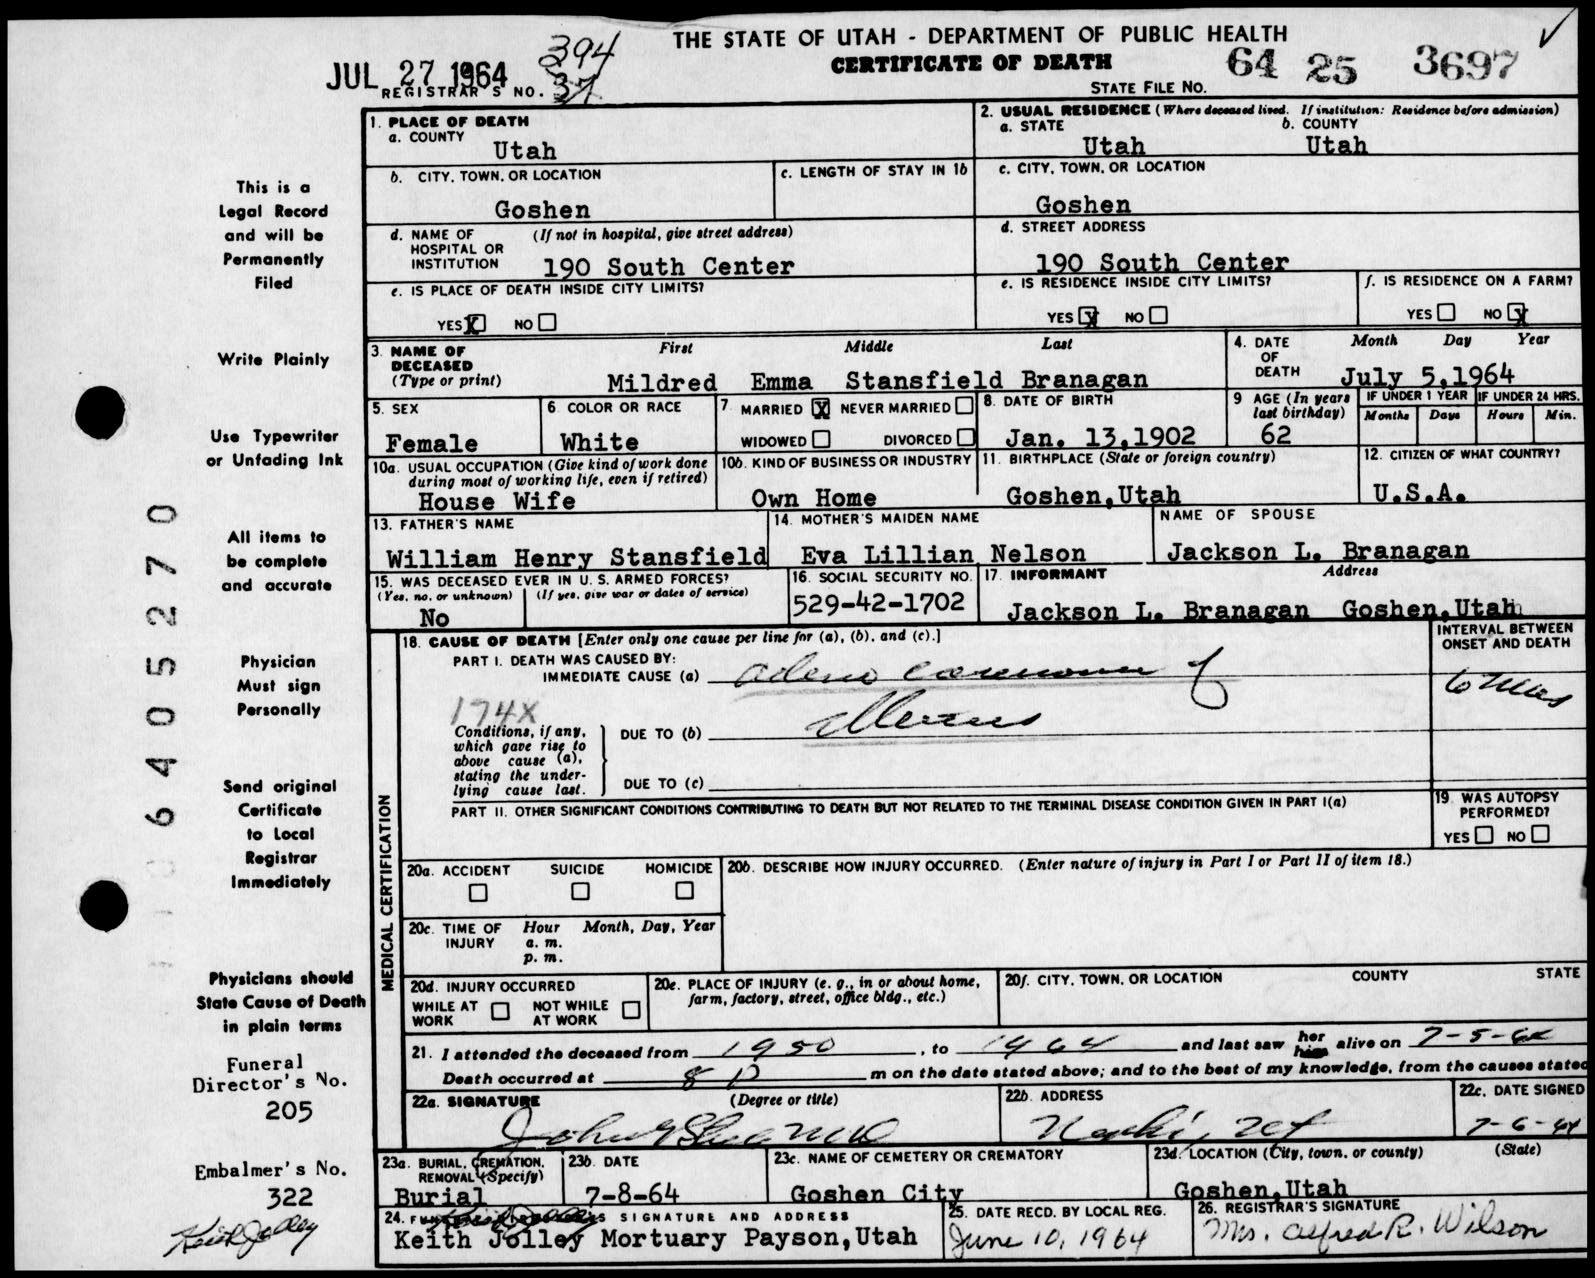 THE STATE OF UTAH - DEPARTMENT OF PUBLIC HEALTH
CERTIFICATE OF DEATH
JUL 27 1964
394
REGISTRAR'S NO. 37
STATE FILE NO. 64 25 3697
This is a
Legal Record
and will be
Permanently
Filed
Write Plainly
Use Typewriter
or Unfading Ink
All items to
be complete
and accurate
Physician
Must sign
Personally
Send original
Certificate
to Local
Registrar
Immediately
Physicians should
State Cause of Death
in plain terms
Funeral
Director's No.
205
Embalmer's No.
322
Keith Jolley
6405270
1. PLACE OF DEATH
a. COUNTY
Utah
b. CITY, TOWN, OR LOCATION
Goshen
c. LENGTH OF STAY IN 1b
d. NAME OF HOSPITAL OR INSTITUTION
(If not in hospital, give street address)
190 South Center
e. IS PLACE OF DEATH INSIDE CITY LIMITS?
YES X NO
2. USUAL RESIDENCE (Where deceased lived. If institution: Residence before admission)
a. STATE
Utah
b. COUNTY
Utah
c. CITY, TOWN, OR LOCATION
Goshen
d. STREET ADDRESS
190 South Center
e. IS RESIDENCE INSIDE CITY LIMITS?
YES X NO
f. IS RESIDENCE ON A FARM?
YES NO X
3. NAME OF DECEASED
(Type or print)
First Middle Last
Mildred Emma Stansfield Branagan
4. DATE OF DEATH
Month Day Year
July 5,1964
5. SEX
Female
6. COLOR OR RACE
White
7. MARRIED X NEVER MARRIED
WIDOWED DIVORCED
8. DATE OF BIRTH
Jan. 13,1902
9 AGE (In years last birthday)
62
IF UNDER 1 YEAR
Months Days
IF UNDER 24 HRS.
Hours Min.
10a. USUAL OCCUPATION (Give kind of work done during most of working life, even if retired)
House Wife
10b. KIND OF BUSINESS OR INDUSTRY
Own Home
11. BIRTHPLACE (State or foreign country)
Goshen,Utah
12. CITIZEN OF WHAT COUNTRY?
U.S.A.
13. FATHER'S NAME
William Henry Stansfield
14. MOTHER'S MAIDEN NAME
Eva Lillian Nelson
NAME OF SPOUSE
Jackson L. Branagan
15. WAS DECEASED EVER IN U. S. ARMED FORCES?
(Yes, no, or unknown) (If yes, give war or dates of service)
No
16. SOCIAL SECURITY NO.
529-42-1702
17. INFORMANT Address
Jackson L. Branagan Goshen,Utah
MEDICAL CERTIFICATION
18. CAUSE OF DEATH [Enter only one cause per line for (a), (b), and (c).]
PART I. DEATH WAS CAUSED BY:
IMMEDIATE CAUSE (a) adeno carcinoma of
174X
Conditions, if any, which gave rise to above cause (a), stating the underlying cause last.
DUE TO (b) Uterus
DUE TO (c)
INTERVAL BETWEEN ONSET AND DEATH
6 mos
PART II. OTHER SIGNIFICANT CONDITIONS CONTRIBUTING TO DEATH BUT NOT RELATED TO THE TERMINAL DISEASE CONDITION GIVEN IN PART I(a)
19. WAS AUTOPSY PERFORMED?
YES NO
20a. ACCIDENT SUICIDE HOMICIDE
20b. DESCRIBE HOW INJURY OCCURRED. (Enter nature of injury in Part I or Part II of item 18.)
20c. TIME OF INJURY
Hour Month, Day, Year
a. m.
p. m.
20d. INJURY OCCURRED
WHILE AT WORK NOT WHILE AT WORK
20e. PLACE OF INJURY (e. g., in or about home, farm, factory, street, office bldg., etc.)
20f. CITY, TOWN, OR LOCATION COUNTY STATE
21. I attended the deceased from 1950, to 1964 and last saw her him alive on 7-5-64
Death occurred at 8 P m on the date stated above; and to the best of my knowledge, from the causes stated
22a. SIGNATURE (Degree or title)
22b. ADDRESS
Nephi, Ut
22c. DATE SIGNED
7-6-64
23a. BURIAL, CREMATION, REMOVAL (Specify)
Burial
23b. DATE
7-8-64
23c. NAME OF CEMETERY OR CREMATORY
Goshen City
23d. LOCATION (City, town, or county) (State)
Goshen,Utah
24. FUNERAL DIRECTOR'S SIGNATURE AND ADDRESS
Keith Jolley Mortuary Payson,Utah
25. DATE RECD. BY LOCAL REG.
June 10, 1964
26. REGISTRAR'S SIGNATURE
Mrs. Alfred R. Wilson